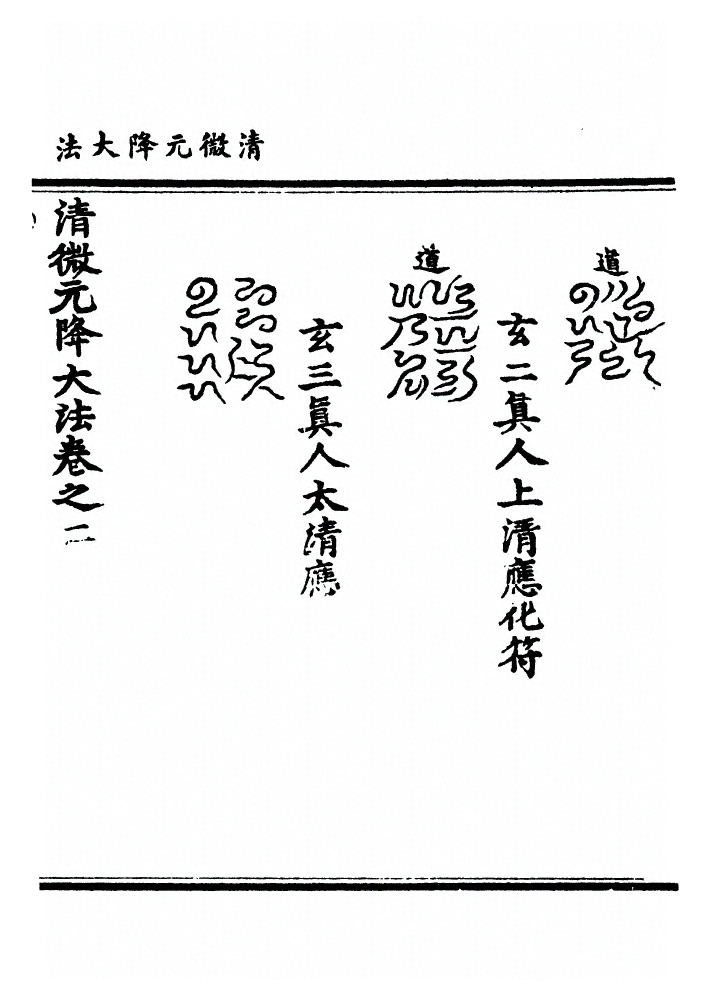 清微元降大法
道
玄二眞人上清應化符
道
玄三眞人太清應
清微元降大法卷之二